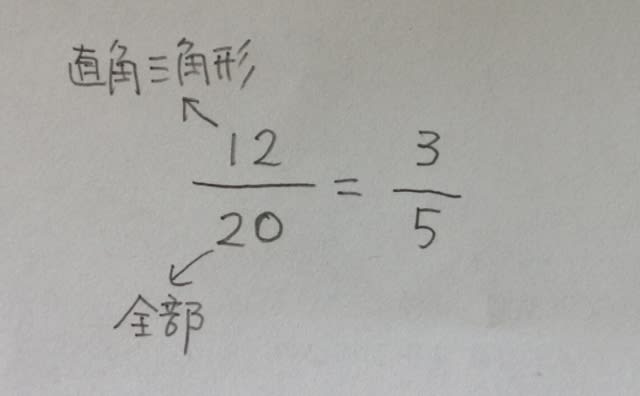 直角三角形
12/20 = 3/5
全部